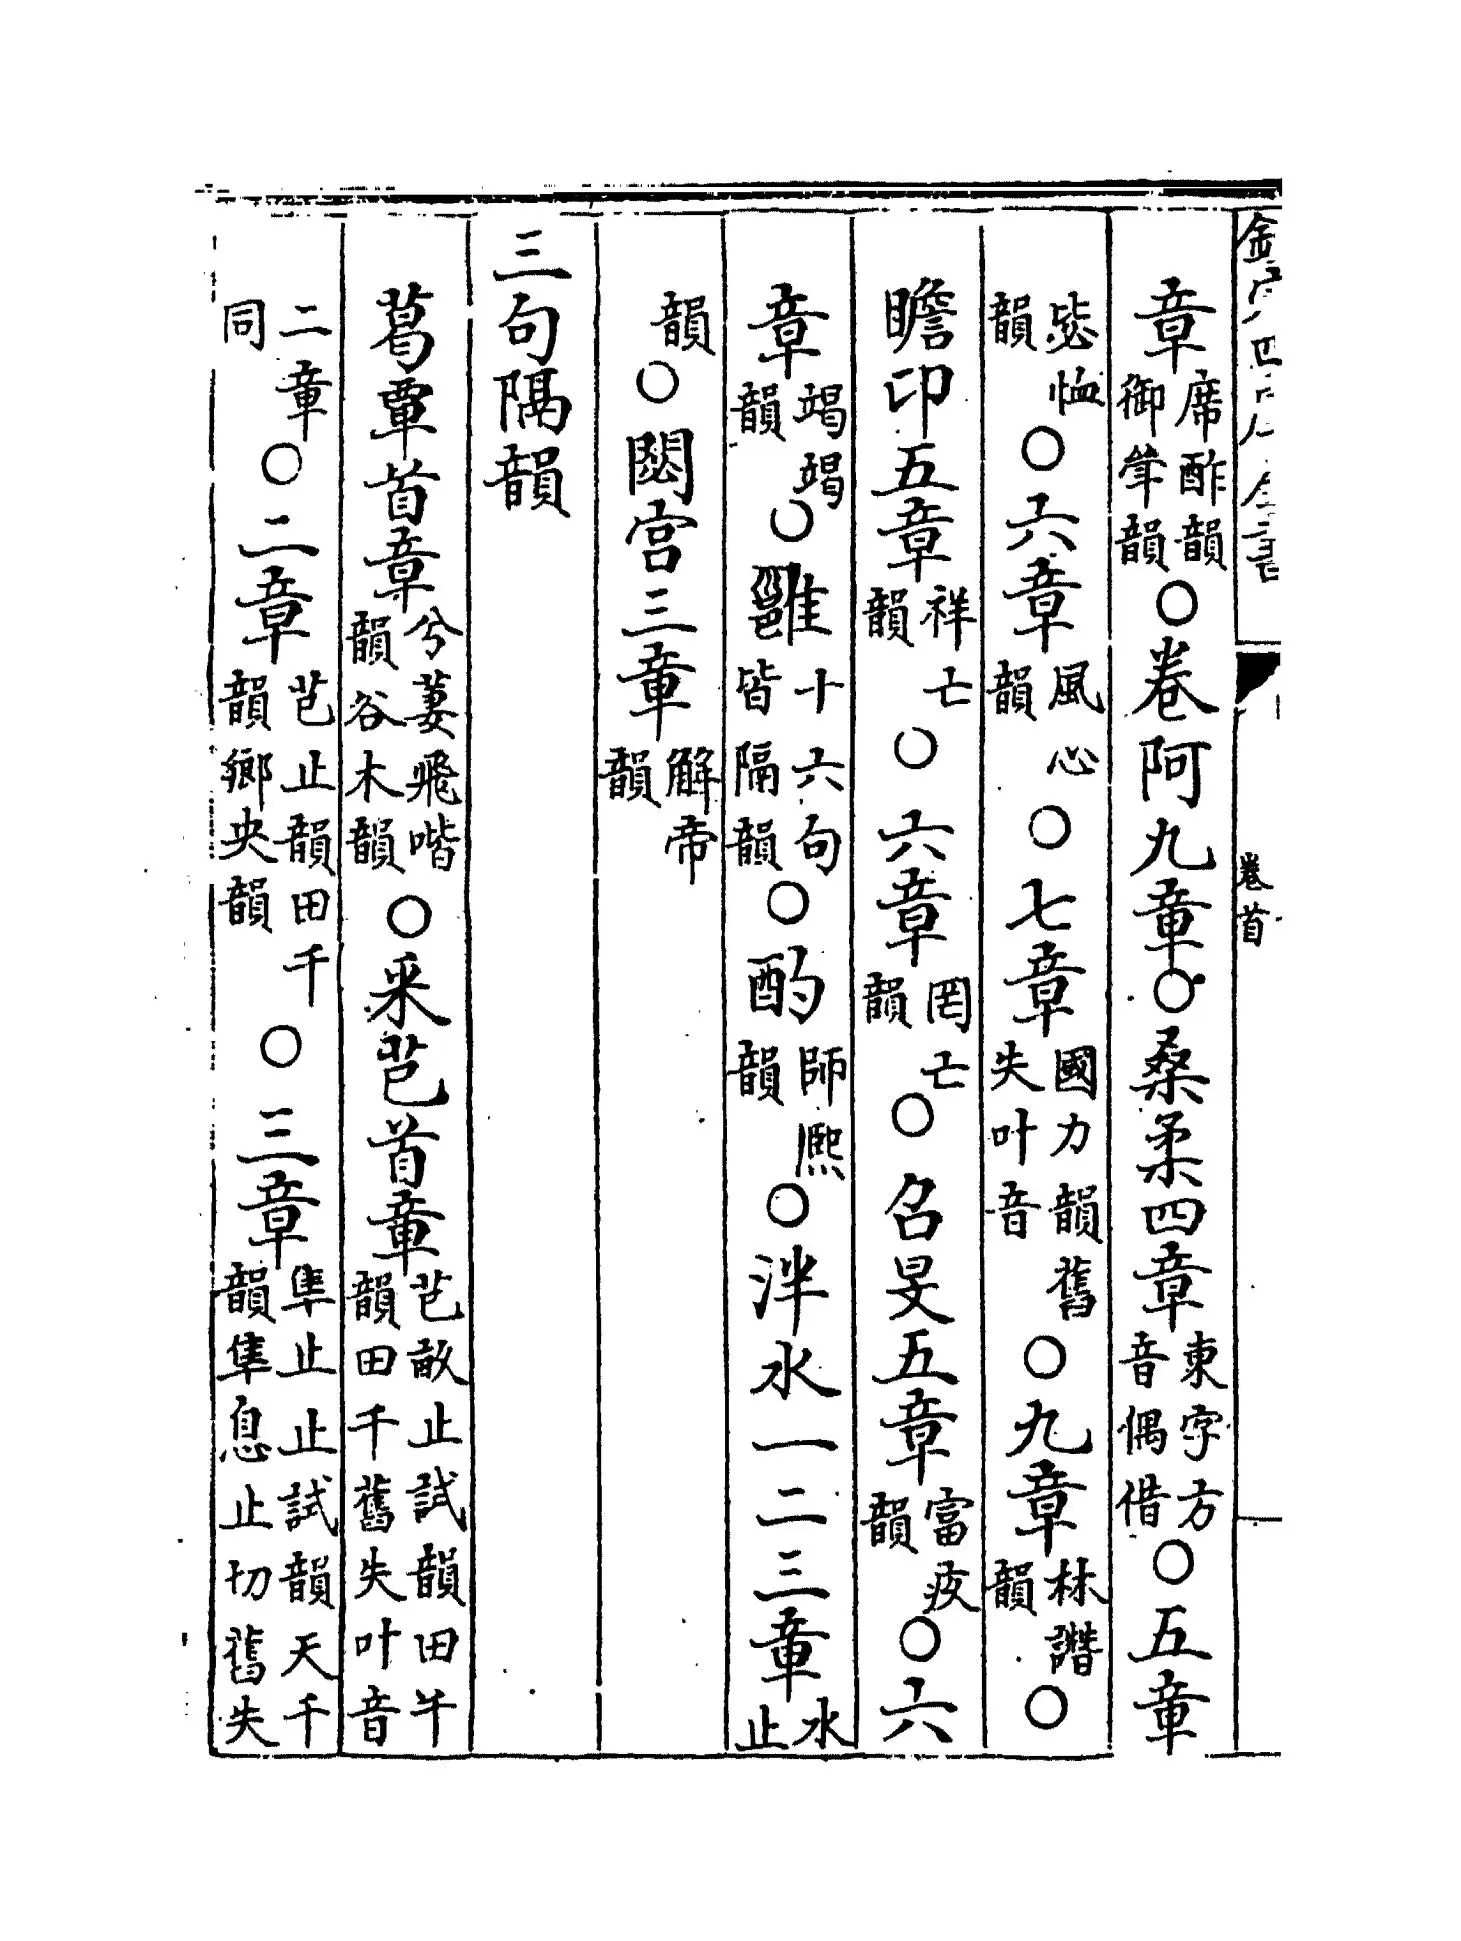 欽定四庫全書 卷首
章席酢韻御斝韻○卷阿九章○桑柔四章東字方音偶借○五章
毖恤韻○六章風心韻○七章國力韻舊失叶音○九章林譖韻○
瞻卬五章祥亡韻○六章罔亡韻○召旻五章富疚韻○六
章竭竭韻○雝十六句皆隔韻○酌師熙韻○泮水一二三章水止
韻○閟宮三章解帝韻
三句隔韻
葛覃首章兮萋飛喈韻谷木韻○采芑首章芑畝止試韻田千韻田千舊失叶音
二章同○二章芑止韻田千韻鄉央韻○三章隼止止試韻天千韻隼息止切舊失